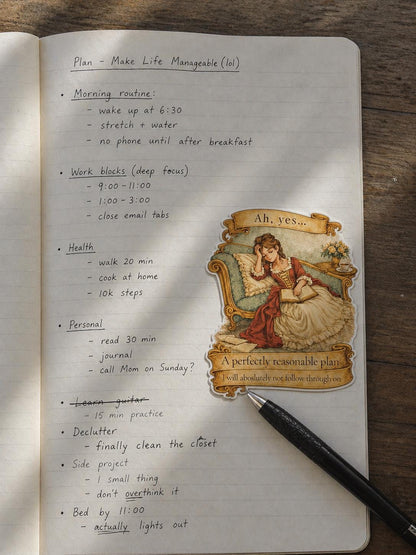 Plan – Make Life Manageable (lol)
• Morning routine:
– wake up at 6:30
– stretch + water
– no phone until after breakfast
• Work blocks (deep focus)
– 9:00 – 11:00
– 1:00 – 3:00
– close email tabs
• Health
– walk 20 min
– cook at home
– 10k steps
• Personal
– read 30 min
– journal
– call Mom on Sunday?
• Learn guitar
– 15 min practice
• Declutter
– finally clean the closet
• Side project
– 1 small thing
– don't overthink it
• Bed by 11:00
– actually lights out
Ah, yes...
A perfectly reasonable plan
I will absolurely not follow throughyon